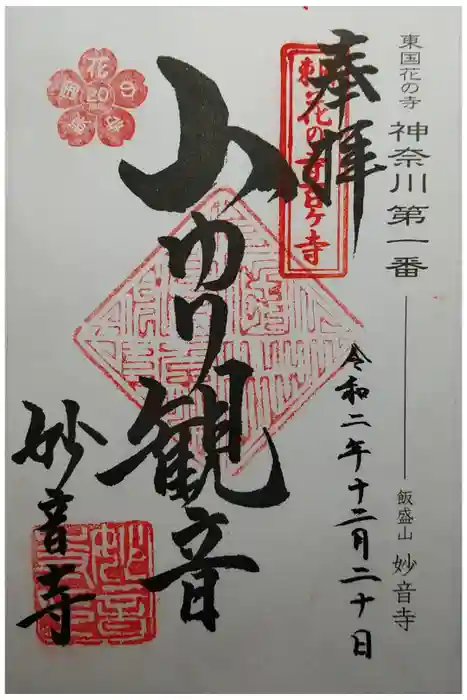 東国花の寺 神奈川 第一番
飯盛山 妙音寺
奉拝
東国花の寺百ヶ寺
令和二年十二月二十日
山ゆり観音
妙音寺
花の寺
20